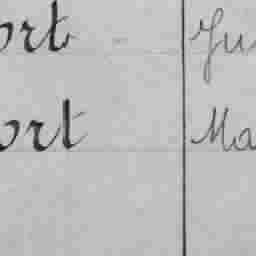 ort Ju
ort Ma